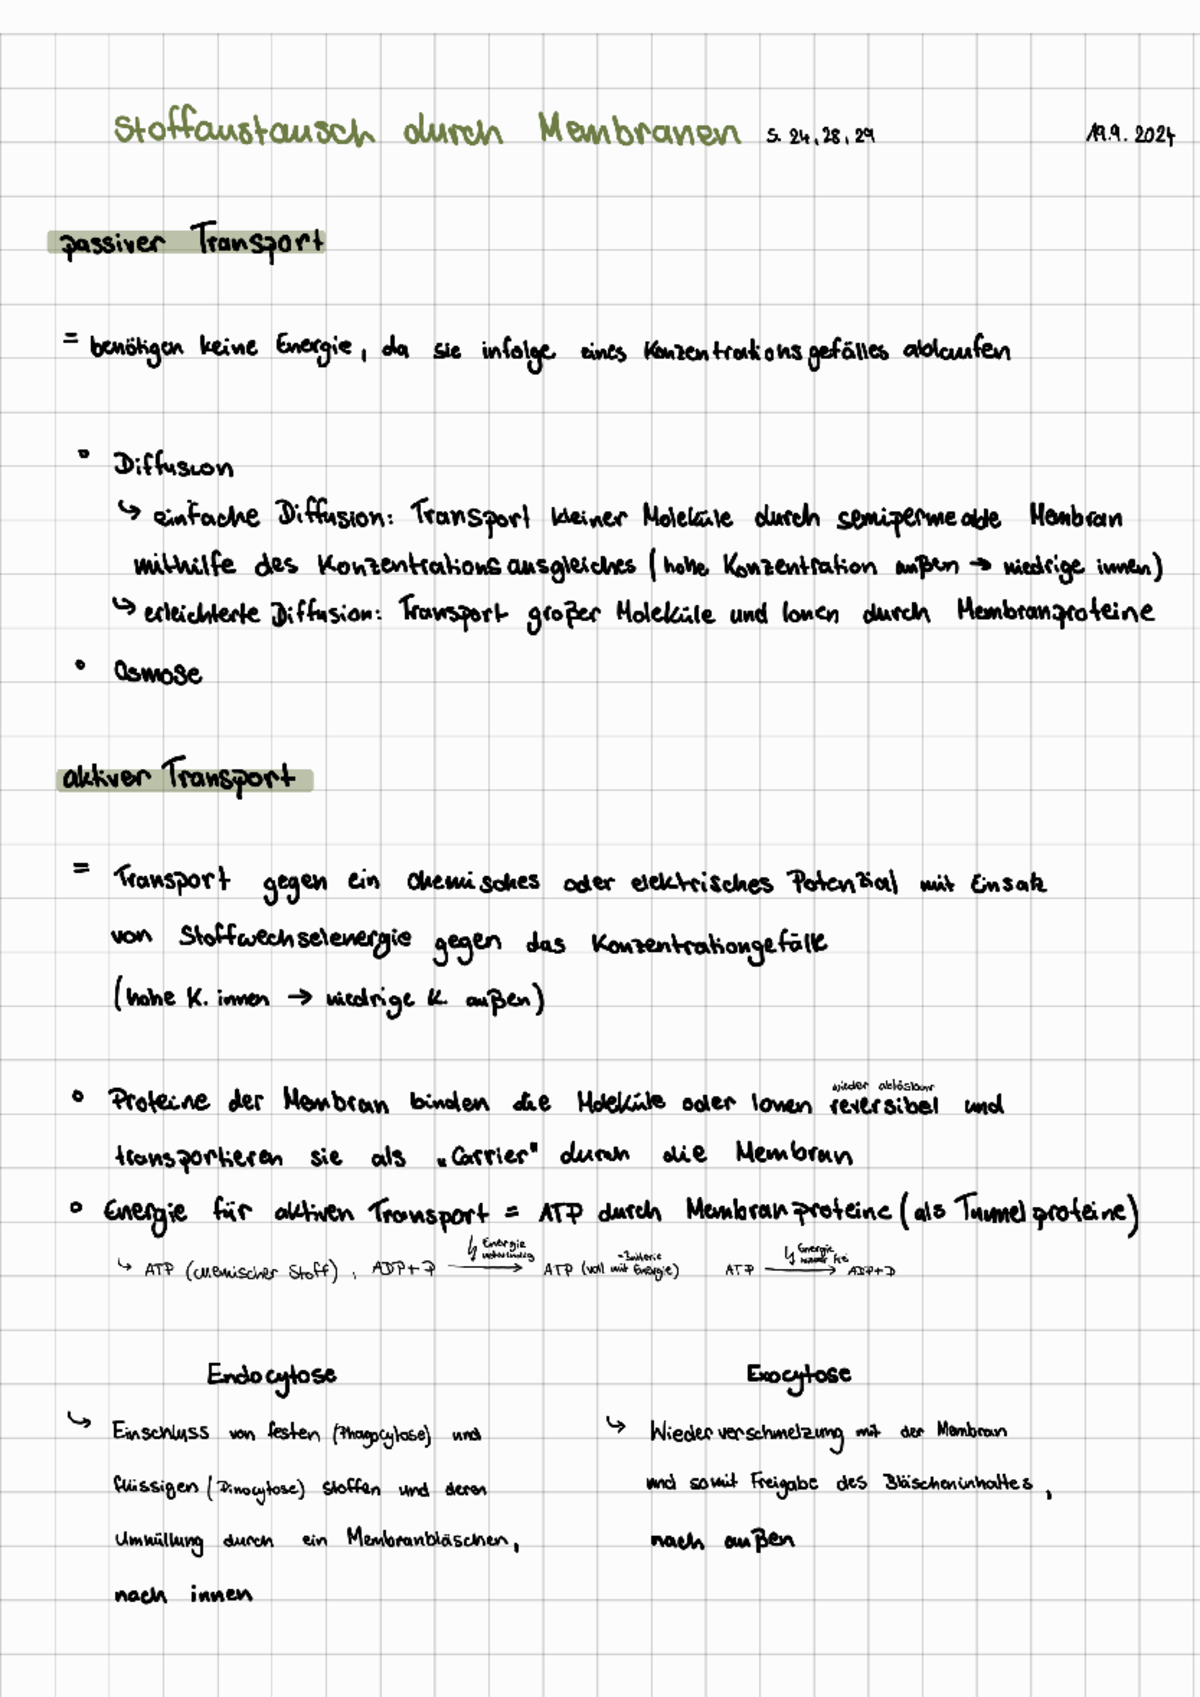 Stoffaustausch durch Membranen S. 24, 28, 29 19.9. 2024
passiver Transport
= benötigen keine Energie, da sie infolge eines Konzentrationsgefälles ablaufen
• Diffusion
↳ einfache Diffusion: Transport kleiner Moleküle durch semipermeable Membran
mithilfe des Konzentrationsausgleiches (hohe Konzentration außen → niedrige innen)
↳ erleichterte Diffusion: Transport großer Moleküle und Ionen durch Membranproteine
• Osmose
aktiver Transport
= Transport gegen ein chemisches oder elektrisches Potenzial mit Einsatz
von Stoffwechselenergie gegen das Konzentrationgefälle
(hohe K. innen → niedrige K. außen)
wieder ablösbar
• Proteine der Membran binden die Moleküle oder Ionen reversibel und
transportieren sie als „Carrier" durch die Membran
• Energie für aktiven Transport = ATP durch Membranproteine (als Tunnelproteine)
Energie notwendig
~Batterie
Energie
↳ ATP (chemischer Stoff), ADP+P → ATP (voll mit Energie) ATP → ADP+P
Endocytose Exocytose
↳ Einschluss von festen (Phagocytose) und
flüssigen (Pinocytose) Stoffen und deren
Umhüllung durch ein Membranbläschen,
nach innen
↳ Wiederverschmelzung mit der Membran
und somit Freigabe des Bläscheninhaltes,
nach außen